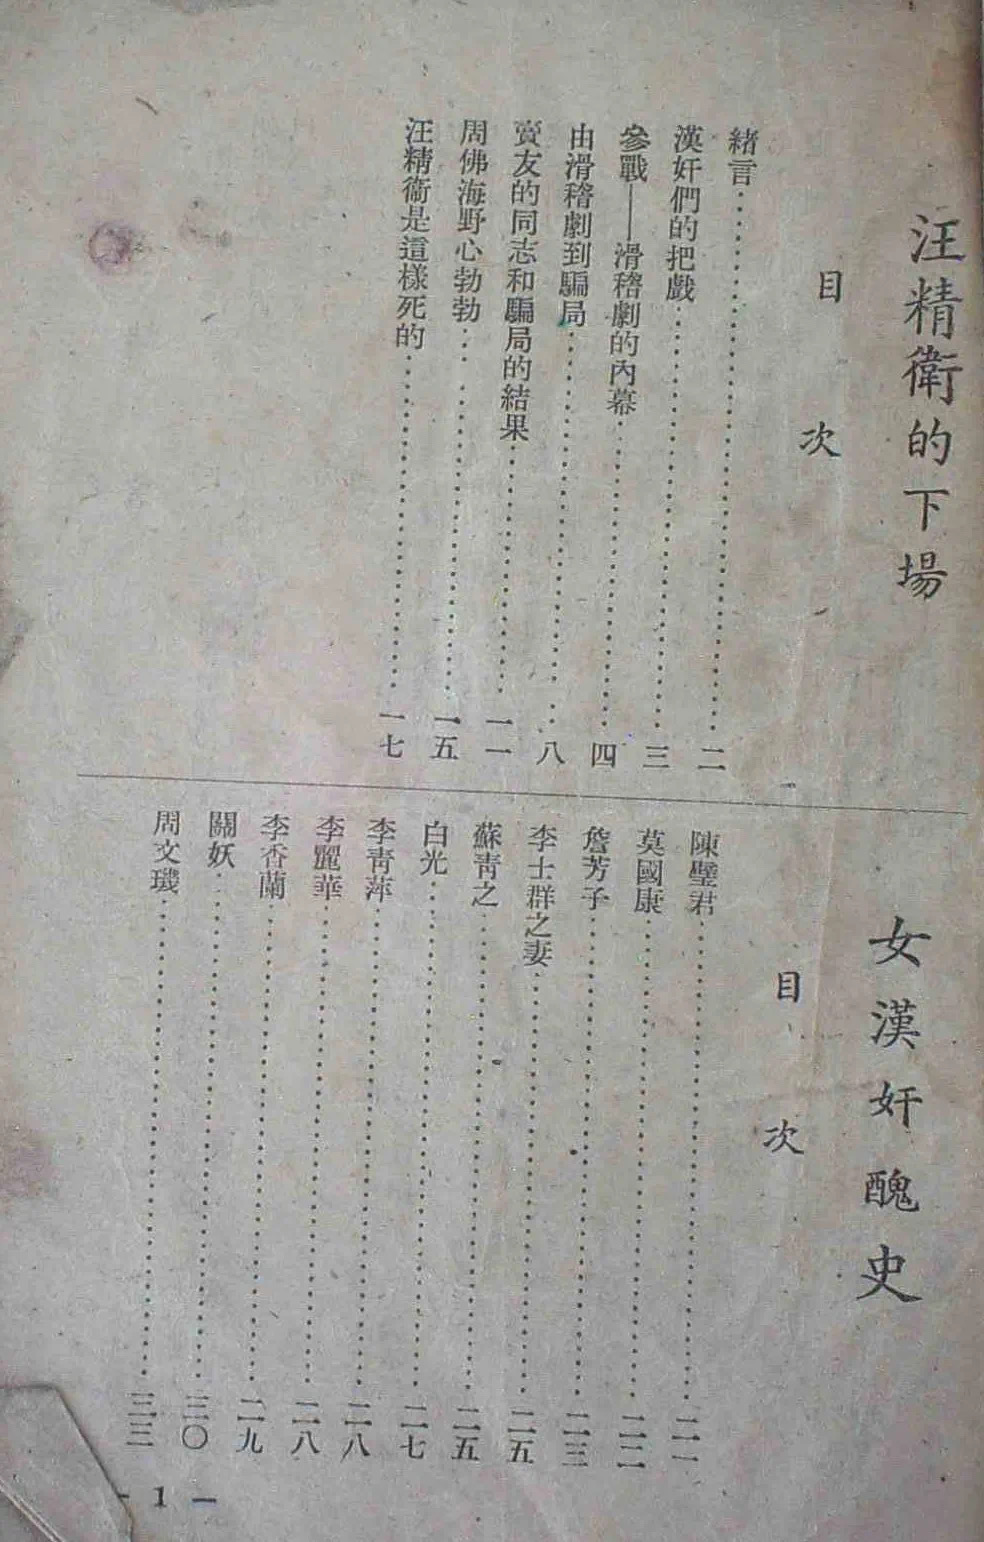 汪精衛的下場
目次
緒言……二
漢奸們的把戲……三
參戰——滑稽劇的內幕……四
由滑稽劇到騙局……八
賣友的同志和騙局的結果……一一
周佛海野心勃勃……一五
汪精衞是這樣死的……一七
女漢奸醜史
目次
陳璧君……二一
莫國康……二二
詹芳子……二三
李士群之妻……二五
蘇靑之……二五
白光……二七
李靑萍……二八
李麗華……二八
李香蘭……二九
關妖……三〇
周文璣……三三
- 1 -